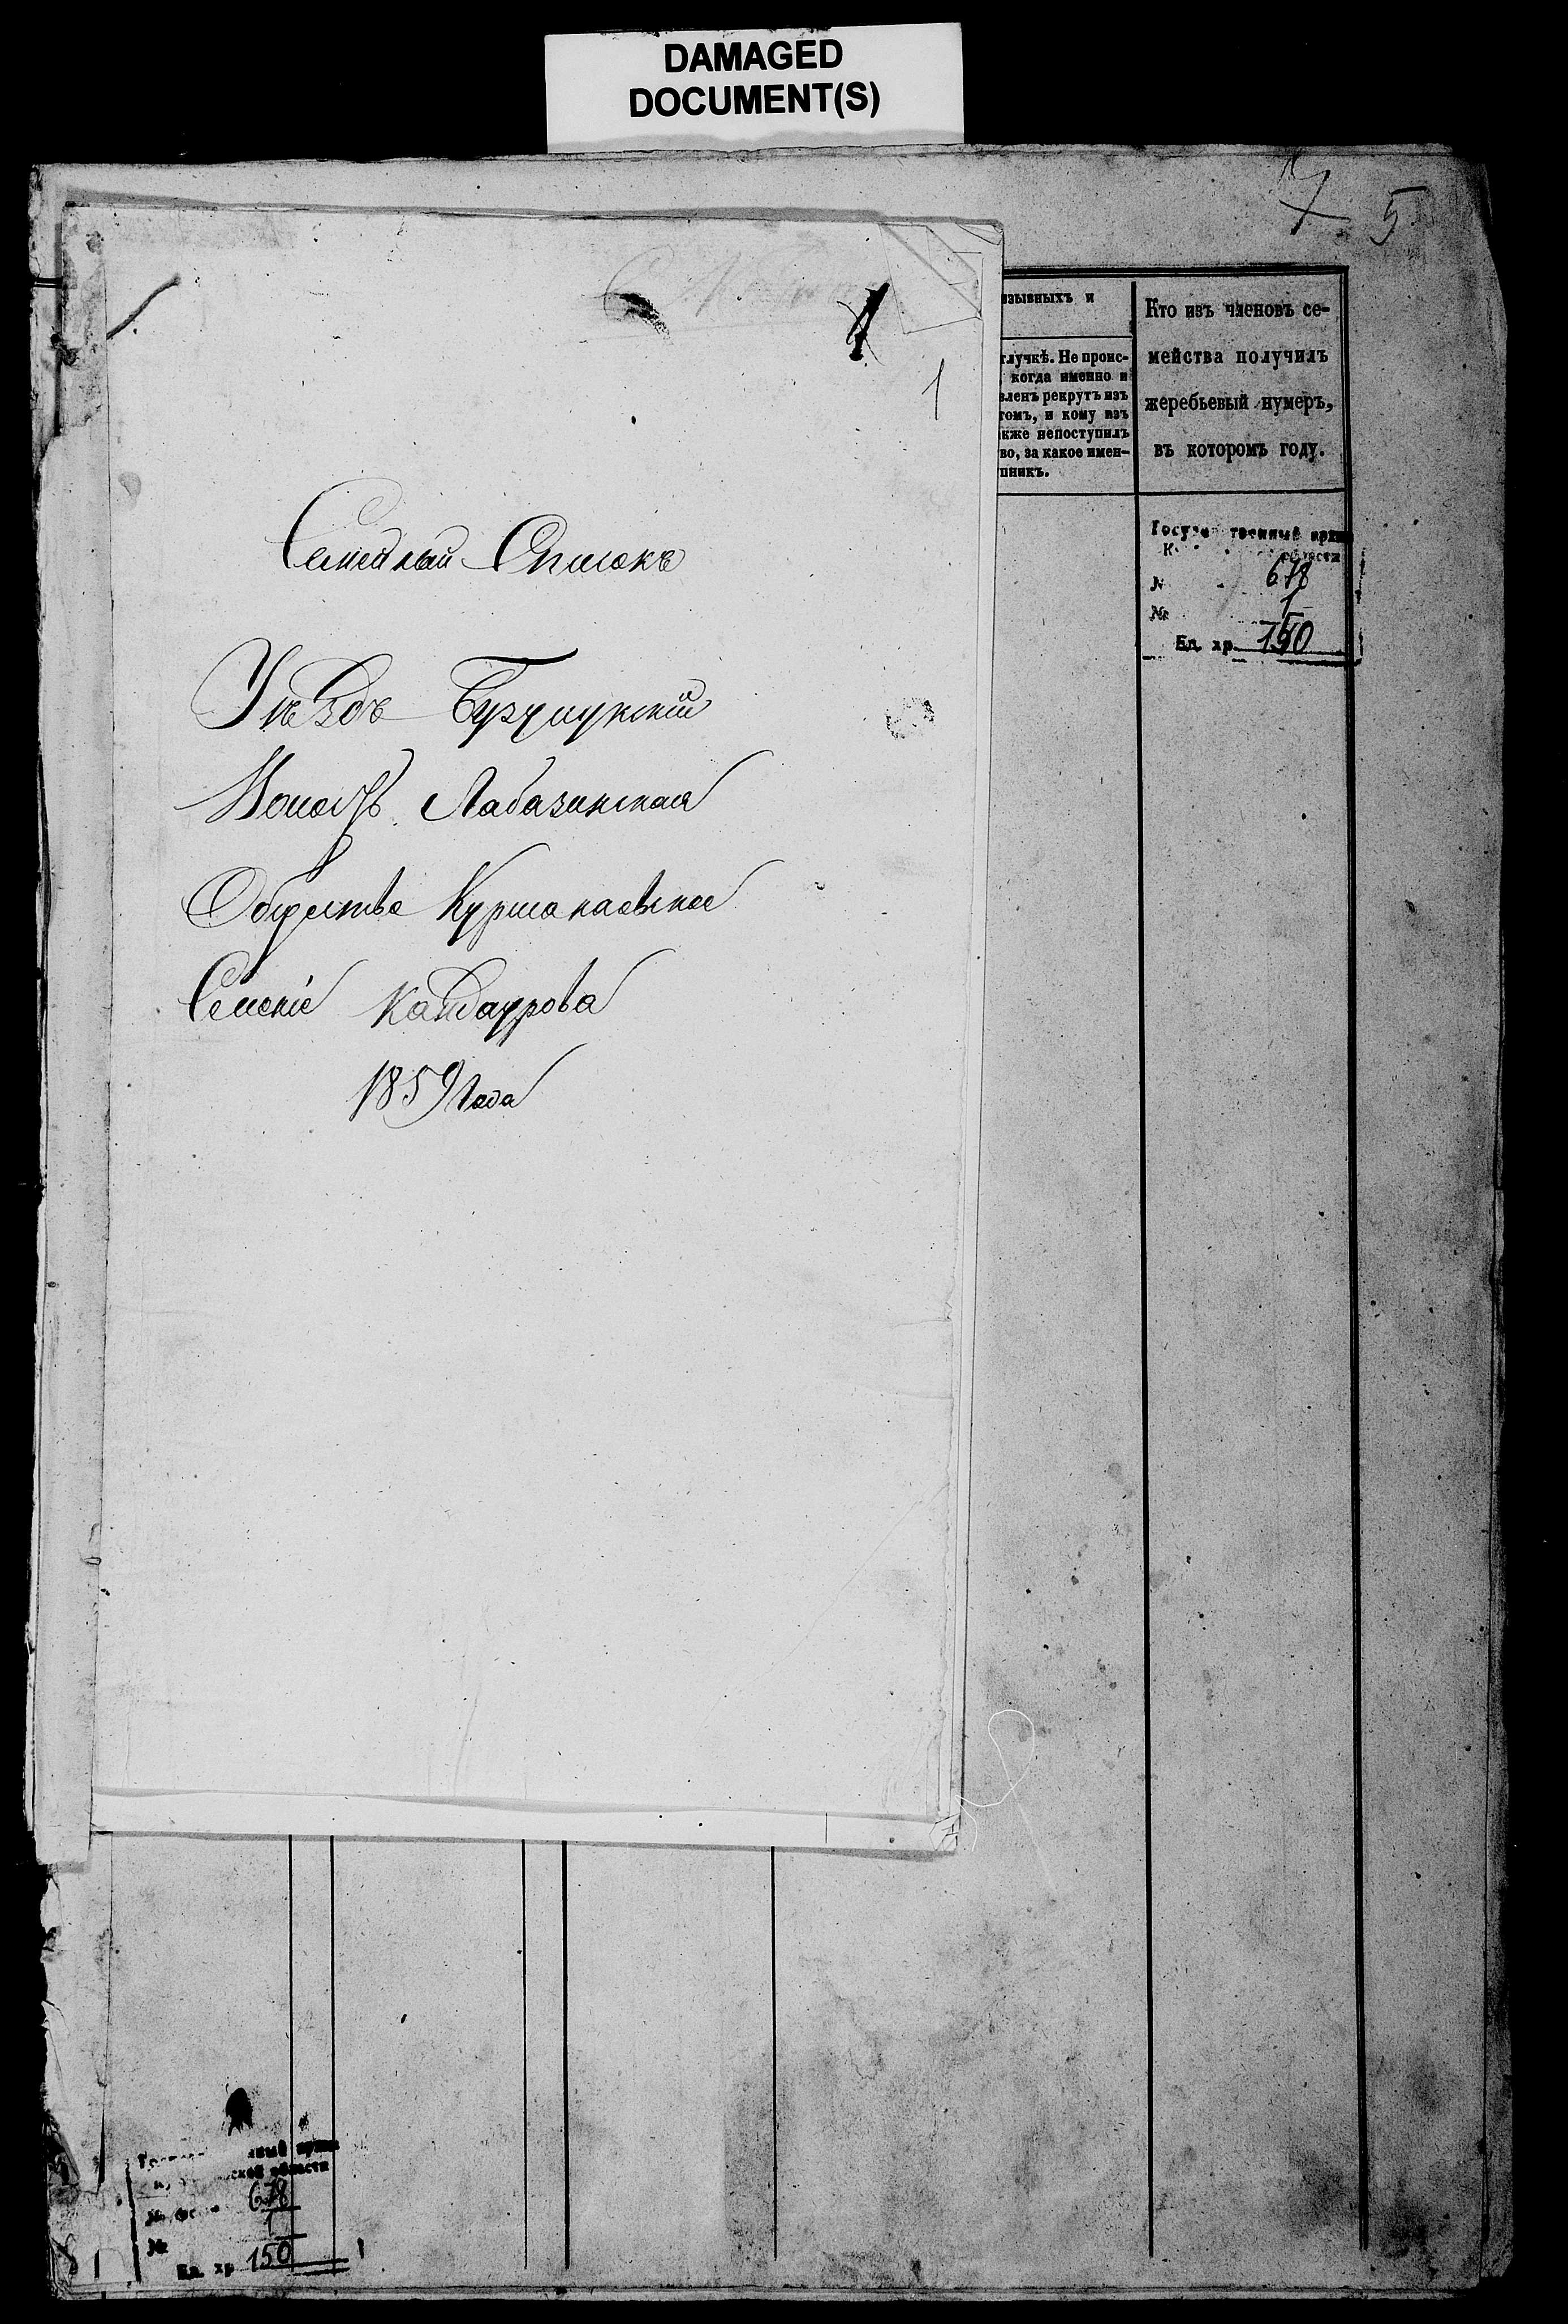 DAMAGED
DOCUMENT(S)
7 5
1
1
Семейный Списокъ
Уѣздъ Бузулукскій
Волость Лабазинская
Общество Курманаевское
Селеніе Кандаурова
1859 Года
изывныхъ и
тлучкѣ. Не проис-
когда именно и
вленъ рекрутъ изъ
томъ, и кому изъ
кже непоступилъ
во, за какое имен-
пникъ.
Кто изъ членовъ се-
мейства получилъ
жеребьевый нумеръ,
въ которомъ году.
678
№ 1
Ед. хр. 150
ской области
678
№ 1
Ед. хр 150